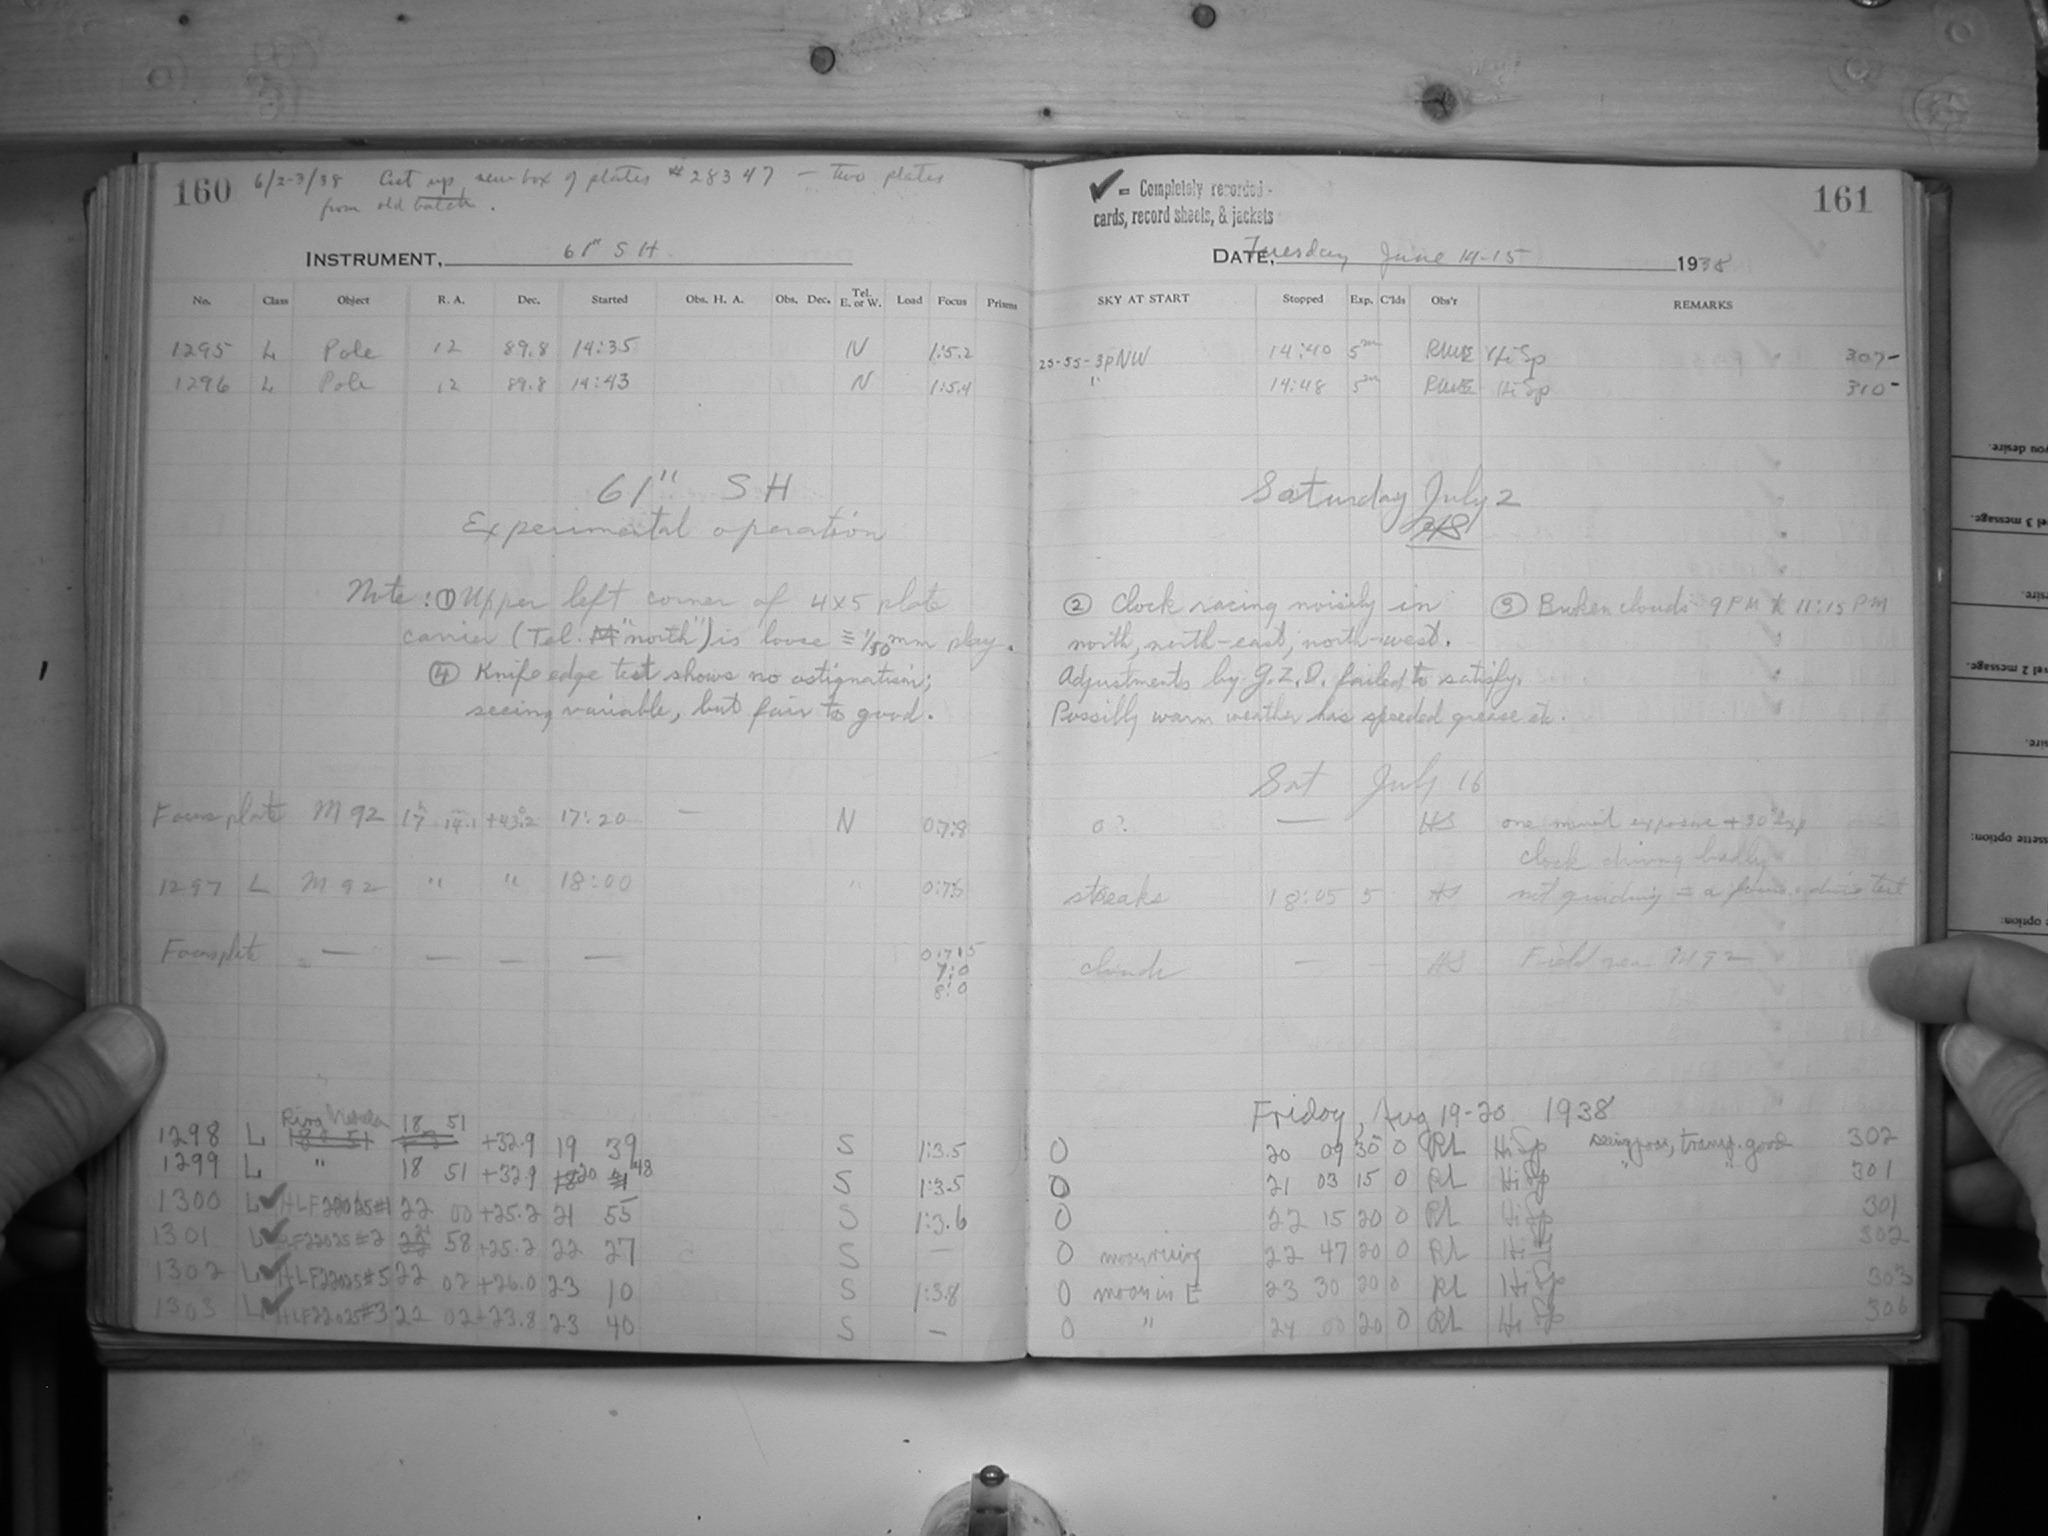 160 6/2-3/38 Cut up new box of plates #28347 — two plates
from old batch.
INSTRUMENT, 61" SH
No. Class Object R. A. Dec. Started Obs. H. A. Obs. Dec. Tel. E. or W. Load Focus Prisms
1295 L Pole 12 89.8 14:35 N 1:5.2
1296 L Pole 12 89.8 14:43 N 1:5.4
61" SH
Experimental operation
Note: ① Upper left corner of 4x5 plate
carrier (Tel. "north") is loose ≡ 1/50 mm play.
④ Knife edge test shows no astigmatism;
seeing variable, but fair to good.
Focus plate M 92 17 14.1 +43.2 17:20 — N 0:7.8
1297 L M 92 " " 18:00 " 0:7.6
Focus plate — — — — 0:7.5
7:0
8:0
Ring Nebula 18 51
1298 L +32.9 19 39 S 1:3.5
1299 L " 18 51 +32.9 20 48 S 1:3.5
1300 L ✓ HLF22025#1 22 00 +25.2 21 55 S 1:3.6
1301 L ✓ HLF22025#2 21 58 +25.2 22 27 S —
1302 L ✓ HLF22025#5 22 02 +26.0 23 10 S 1:3.8
1303 L ✓ HLF22025#3 22 02 +23.8 23 40 S —
✓ = Completely recorded -
cards, record sheets, & jackets
161
DATE, Tuesday June 14-15 1938
SKY AT START Stopped Exp. C'lds Obs'r REMARKS
25-55-3p NW 14:40 5m Hi Sp 307-
" 14:48 5m Hi Sp 310-
Saturday July 2
② Clock racing noisily in
north, north-east, north-west.
Adjustments by J.Z.D. failed to satisfy.
Possibly warm weather has speeded grease etc.
③ Broken clouds 9 PM to 11:15 PM
Sat July 16
0? — HS one minute exposure + 30s exp
clock driving badly
streaks 18:05 5 HS not guiding = a focus + drive test
clouds — — HS Field near M92
Friday, Aug 19-20 1938
0 20 09 30 0 RL Hi Sp seeing poor, transp. good 302
0 21 03 15 0 RL Hi Sp " " 301
0 22 15 20 0 RL Hi Sp 301
0 moon rising 22 47 20 0 RL Hi Sp 302
0 moon in E 23 30 20 0 RL Hi Sp 303
0 " 24 00 20 0 RL Hi Sp 306
you desire.
el 3 message.
sire.
vel 2 message.
sire.
ssette option:
e option: